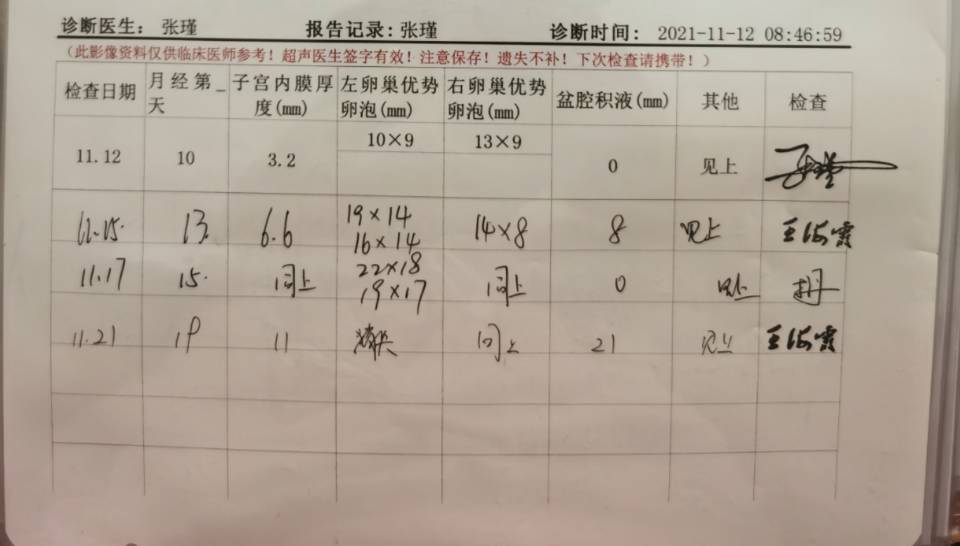 诊断医生： 张瑾 报告记录: 张瑾 诊断时间： 2021-11-12 08:46:59
(此影像资料仅供临床医师参考！超声医生签字有效！注意保存！遗失不补！下次检查请携带！)
检查日期 月经第_天 子宫内膜厚度(mm) 左卵巢优势卵泡(mm) 右卵巢优势卵泡(mm) 盆腔积液(mm) 其他 检查
11.12 10 3.2 10×9 13×9 0 见上
11.15. 13. 6.6 19×14 16×14 14×8 8 见上 王海霞
11.17 15. 同上 22×18 19×17 同上 0 见上
11.21 19 11 消失 同上 21 见上 王海霞